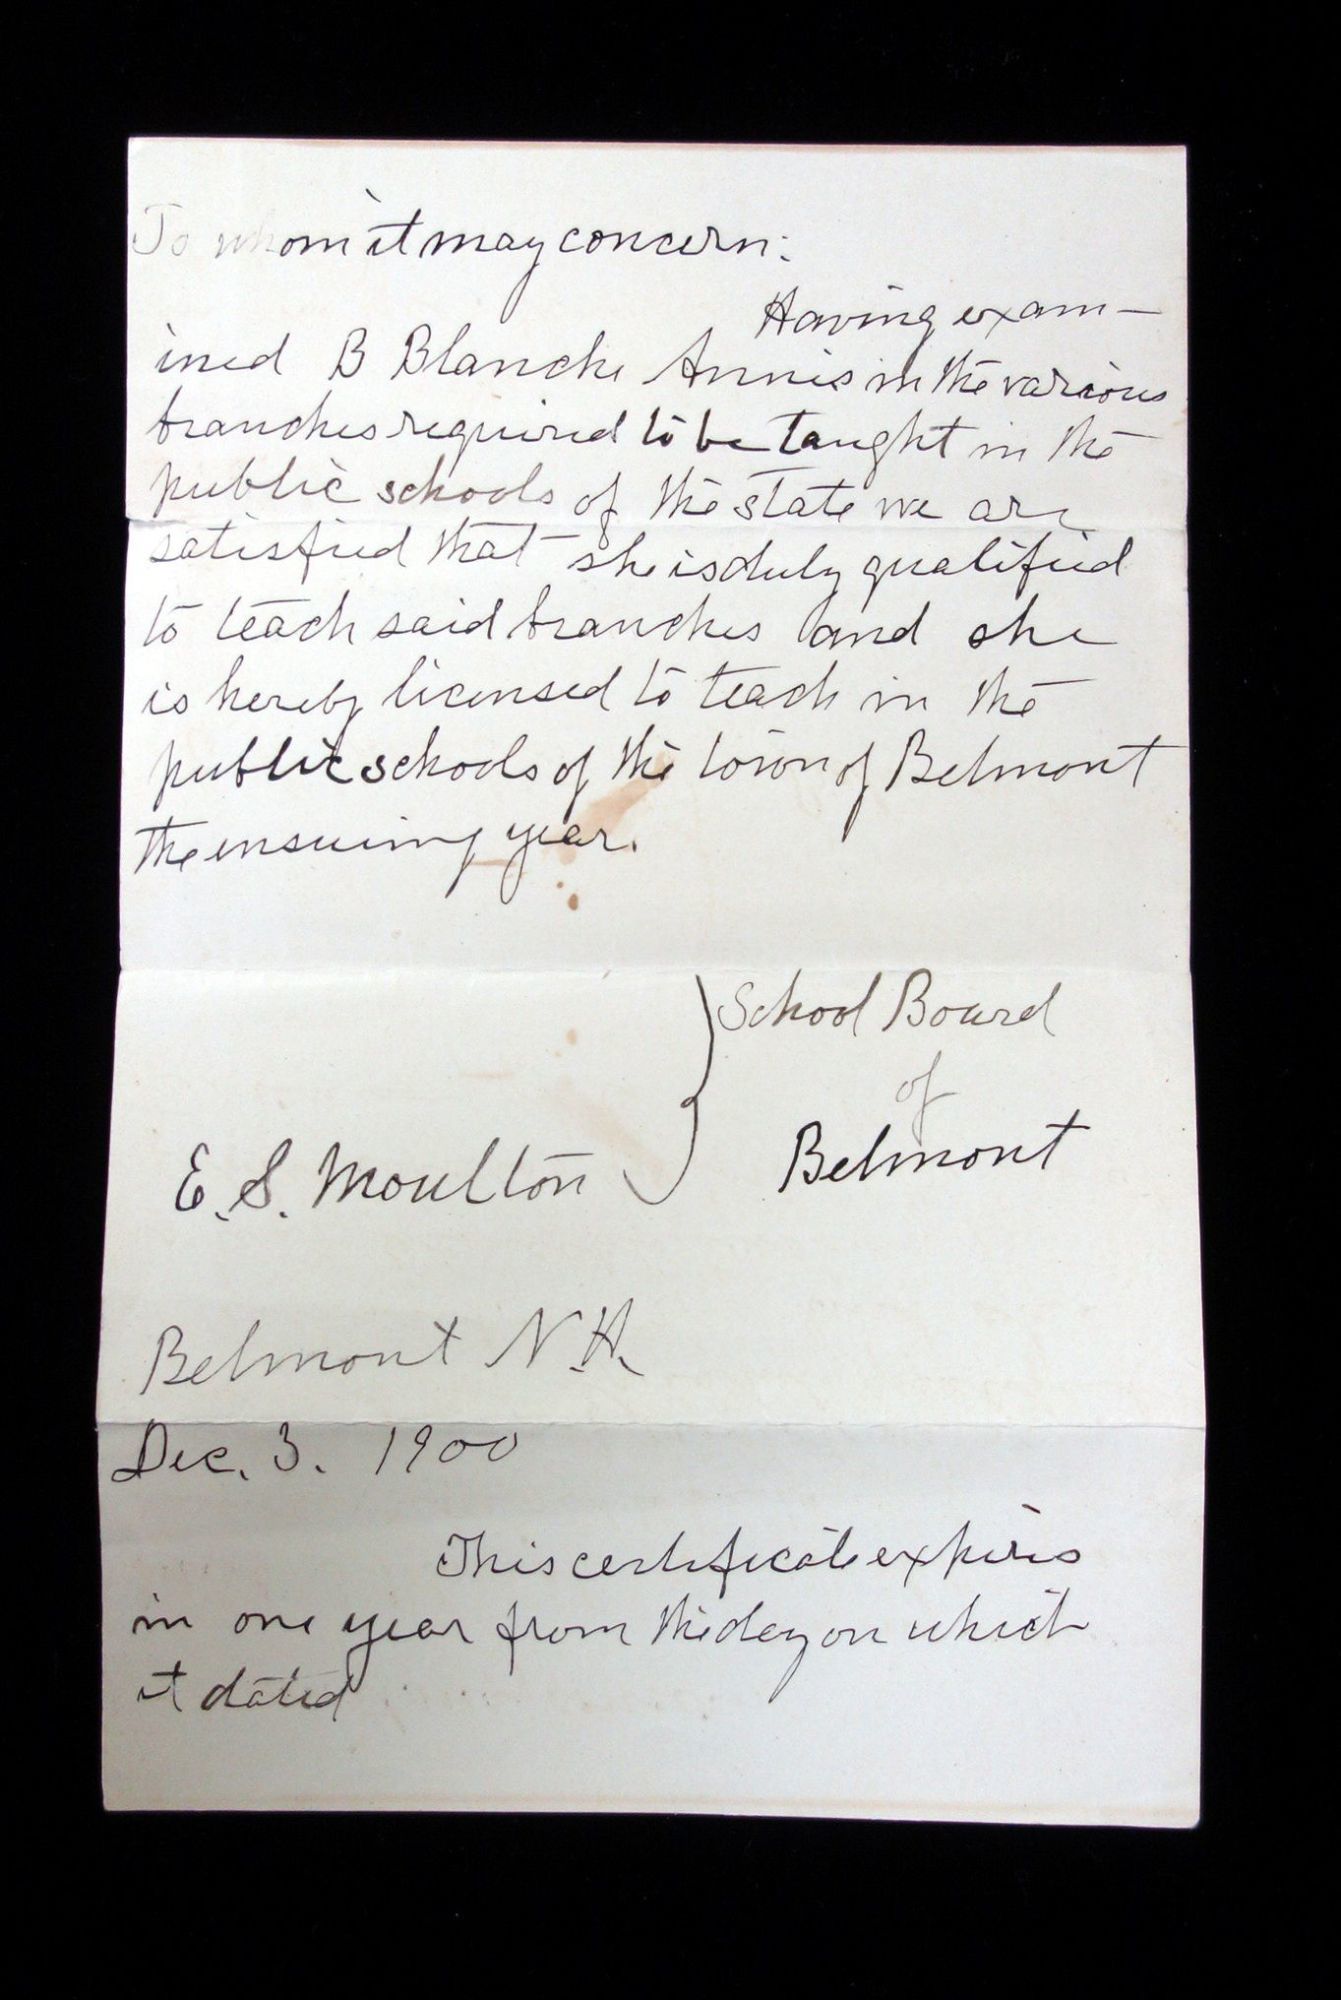 To whom it may concern:
Having exam-
ined B Blanche Annis in the various
branches required to be taught in the
public schools of the state we are
satisfied that she is duly qualified
to teach said branches and she
is hereby licensed to teach in the
public schools of the town of Belmont
the ensuing year.
School Board
of
E. S. Moulton } Belmont
Belmont N.H.
Dec. 3. 1900
This certificate expires
in one year from the day on which
it dated